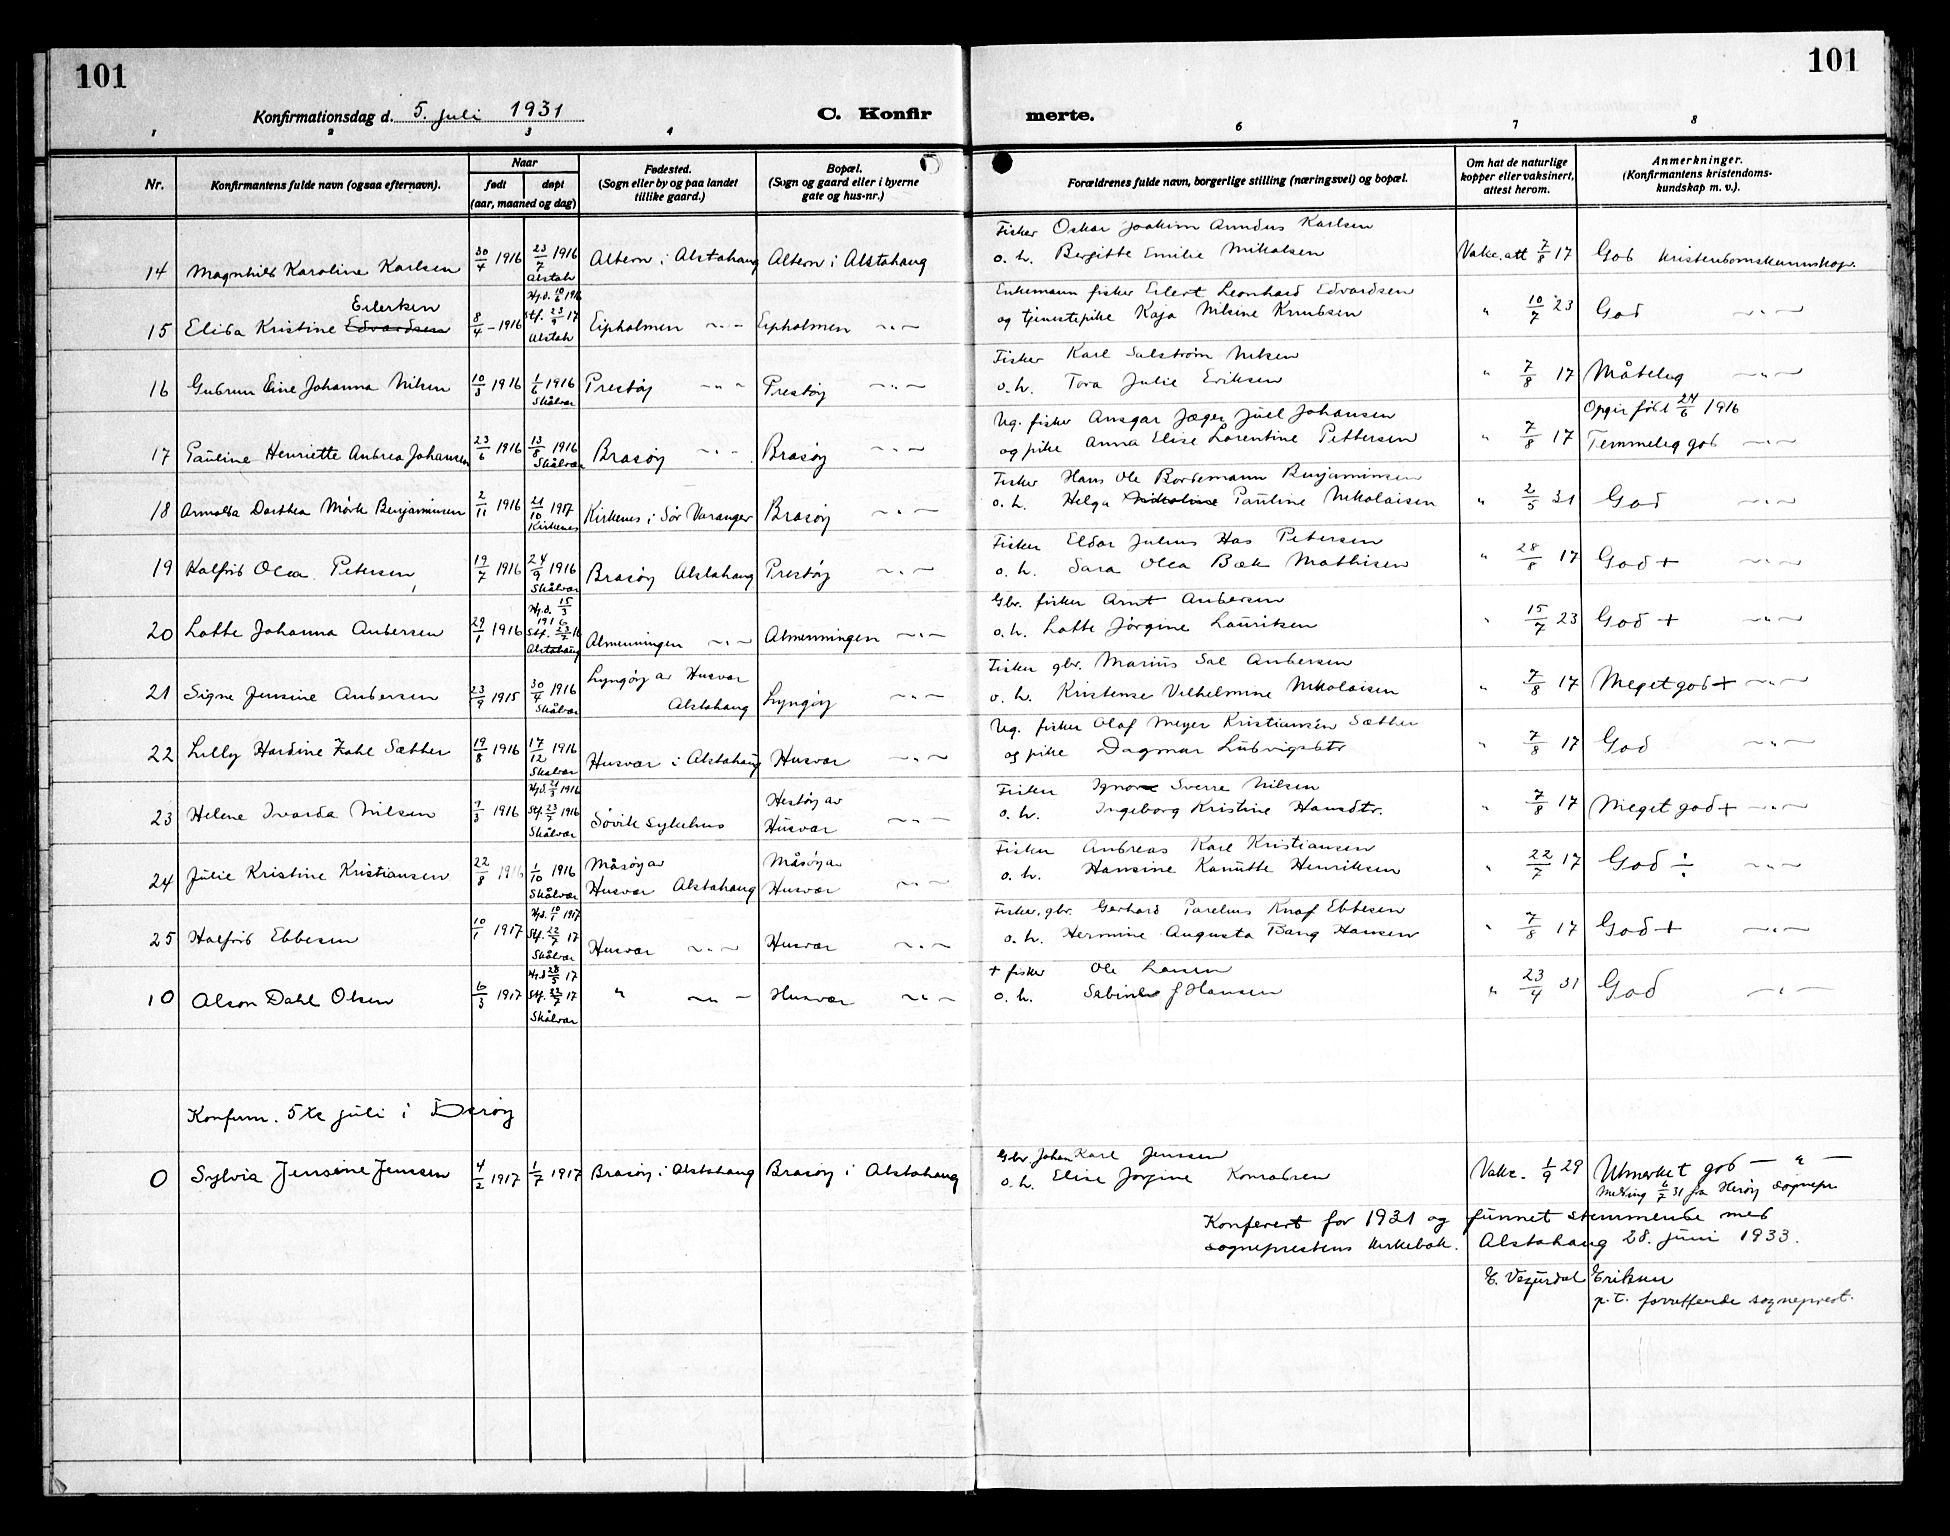 101
101
Konfirmationsdag d. 5. juli 1931
C. Konfir
merte.
1 2 3 4 6 7 8
Nr.
Konfirmantens fulde navn (ogsaa efternavn).
Naar
født døpt
(aar, maaned og dag)
Fødested.
(Sogn eller by og paa landet
tillike gaard.)
Bopæl.
(Sogn og gaard eller i byerne
gate og hus-nr.)
Forældrenes fulde navn, borgerlige stilling (næringsvei) og bopæl.
Om hat de naturlige
kopper eller vaksinert,
attest herom.
Anmerkninger.
(Konfirmantens kristendoms-
kundskap m. v.).
14 Magnhild Karoline Karlsen 30/4 1916 23/7 1916 Alstah Altern i Alstahaug Altern i Alstahaug
Fisker Oskar Joakim Amndus Karlsen
o. h. Bergitte Emilie Mikalsen Vakc. att 7/8 17 God kristendomskunnskap.
Eilertsen
15 Elida Kristine Edvardsen 8/4 - 1916 Hj.d. 10/6 1916 Stf. 23/9 17 Alstah Eipholmen ~„~ Eipholmen ~„~
Enkemann fisker Eilert Leonhard Edvardsen
og tjenestepike Kaja Nilsine Knudsen „ 10/7 23 God ~„~
16 Gudrun Eine Johanna Nilsen 10/3 1916 1/6 1916 Skålvær Prestøy ~„~ Prestøy ~„~
Fisker Karl Salstrøm Nilsen
o. h. Tora Julie Eriksen „ 7/8 17 Måtelig ~„~
17 Pauline Henriette Andrea Johansen 23/6 1916 13/8 1916 Skålvær Brasøy ~„~ Brasøy ~„~
Ug. fisker Ansgar Jæger Juel Johansen
og pike Anna Elise Lorentine Pettersen „ 7/8 17
Opgir født 24/6 1916
Temmelig god ~„~
18 Arnolda Dorthea Mörk Benjaminsen 2/11 1916 21/10 1917 Kirkenes Kirkenes i Sør Varanger Brasøy ~„~
Fisker Hans Ole Bordemann Benjaminsen
o. h. Helga Nikoline Pauline Nikolaisen „ 2/5 31 God ~„~
19 Halfrid Olea Petersen 19/7 1916 24/9 1916 Skålvær Brasøy Alstahaug Prestøy ~„~
Fisker Eldar Julius Has Petersen
o. h. Sara Olea Bæk Mathisen „ 28/8 17 God + ~„~
20 Lotte Johanna Andersen 29/1 1916 Hj.d. 15/3 1916 Stf. 23/7 16 Alstahaug Almenningen ~„~ Almenningen ~„~
Gbr. fisker Arnt Andersen
o. h. Lotte Jörgine Lauritsen „ 15/7 23 God + ~„~
21 Signe Jensine Andersen 23/9 1915 30/4 1916 Skålvær Lyngøy av Husvær Alstahaug Lyngøy ~„~
Fisker gbr. Marius Sal Andersen
o. h. Kristense Vilhelmine Nikolaisen „ 7/8 17 Meget god + ~„~
22 Lilly Hardine Zahl Sæther 19/8 1916 17/12 1916 Skålvær Husvær i Alstahaug Husvær ~„~
Ug. fisker Olaf Meyer Kristiansen Sæther
og pike Dagmar Ludvigsdtr „ 7/8 17 God ~„~
23 Helene Ivarda Nilsen 7/3 1916 Hj.d. 21/3 1916 Stf. 23/7 1916 Skålvær Søvik sykehus Hestøy av Husvær ~„~
Fisker Sverre Nilsen
o. h. Ingeborg Kristine Hansdtr. „ 7/8 17 Meget god + ~„~
24 Julie Kristine Kristiansen 22/8 1916 1/10 1916 Skålvær Måsøy av Husvær Alstahaug Måsøy av Husvær ~„~
Fisker Andreas Karl Kristiansen
o. h. Hansine Kanutte Henriksen „ 22/7 17 God ÷ ~„~
25 Halfrid Ebbesen 10/1 1917 Hj.d. 10/1 1917 Stf. 22/7 17 Skålvær Husvær ~„~ Husvær ~„~
Fisker, gbr. Gerhard Parelius Knaf Ebbesen
o. h. Hermine Augusta Bang Hansen „ 7/8 17 God + ~„~
10 Alson Dahl Olsen 6/3 1917 Hj.d 28/5 17 Stf. 22/7 17 Skålvær „ ~„~ Husvær ~„~
+ fisker Ole Larsen
o. h. Sabine J Hansen „ 23/4 31 God ~„~
Konfirm. 5te juli i Herøy
0 Sylvia Jensine Jensen 4/2 1917 1/7 1917 Brasøy i Alstahaug Brasøy i Alstahaug
Gbr Johan Karl Jenssen
o. h. Elise Jorgine Konradsen Vakc. 1/9 29 Utmerket god — „ —
Melding 6/7 31 fra Herøy sognepr.
Konferert for 1931 og funnet stemmende med
sogneprestens kirkebok. Alstahaug 28. juni 1933.
E. Eriksen
p.t. forrettende sogneprest.